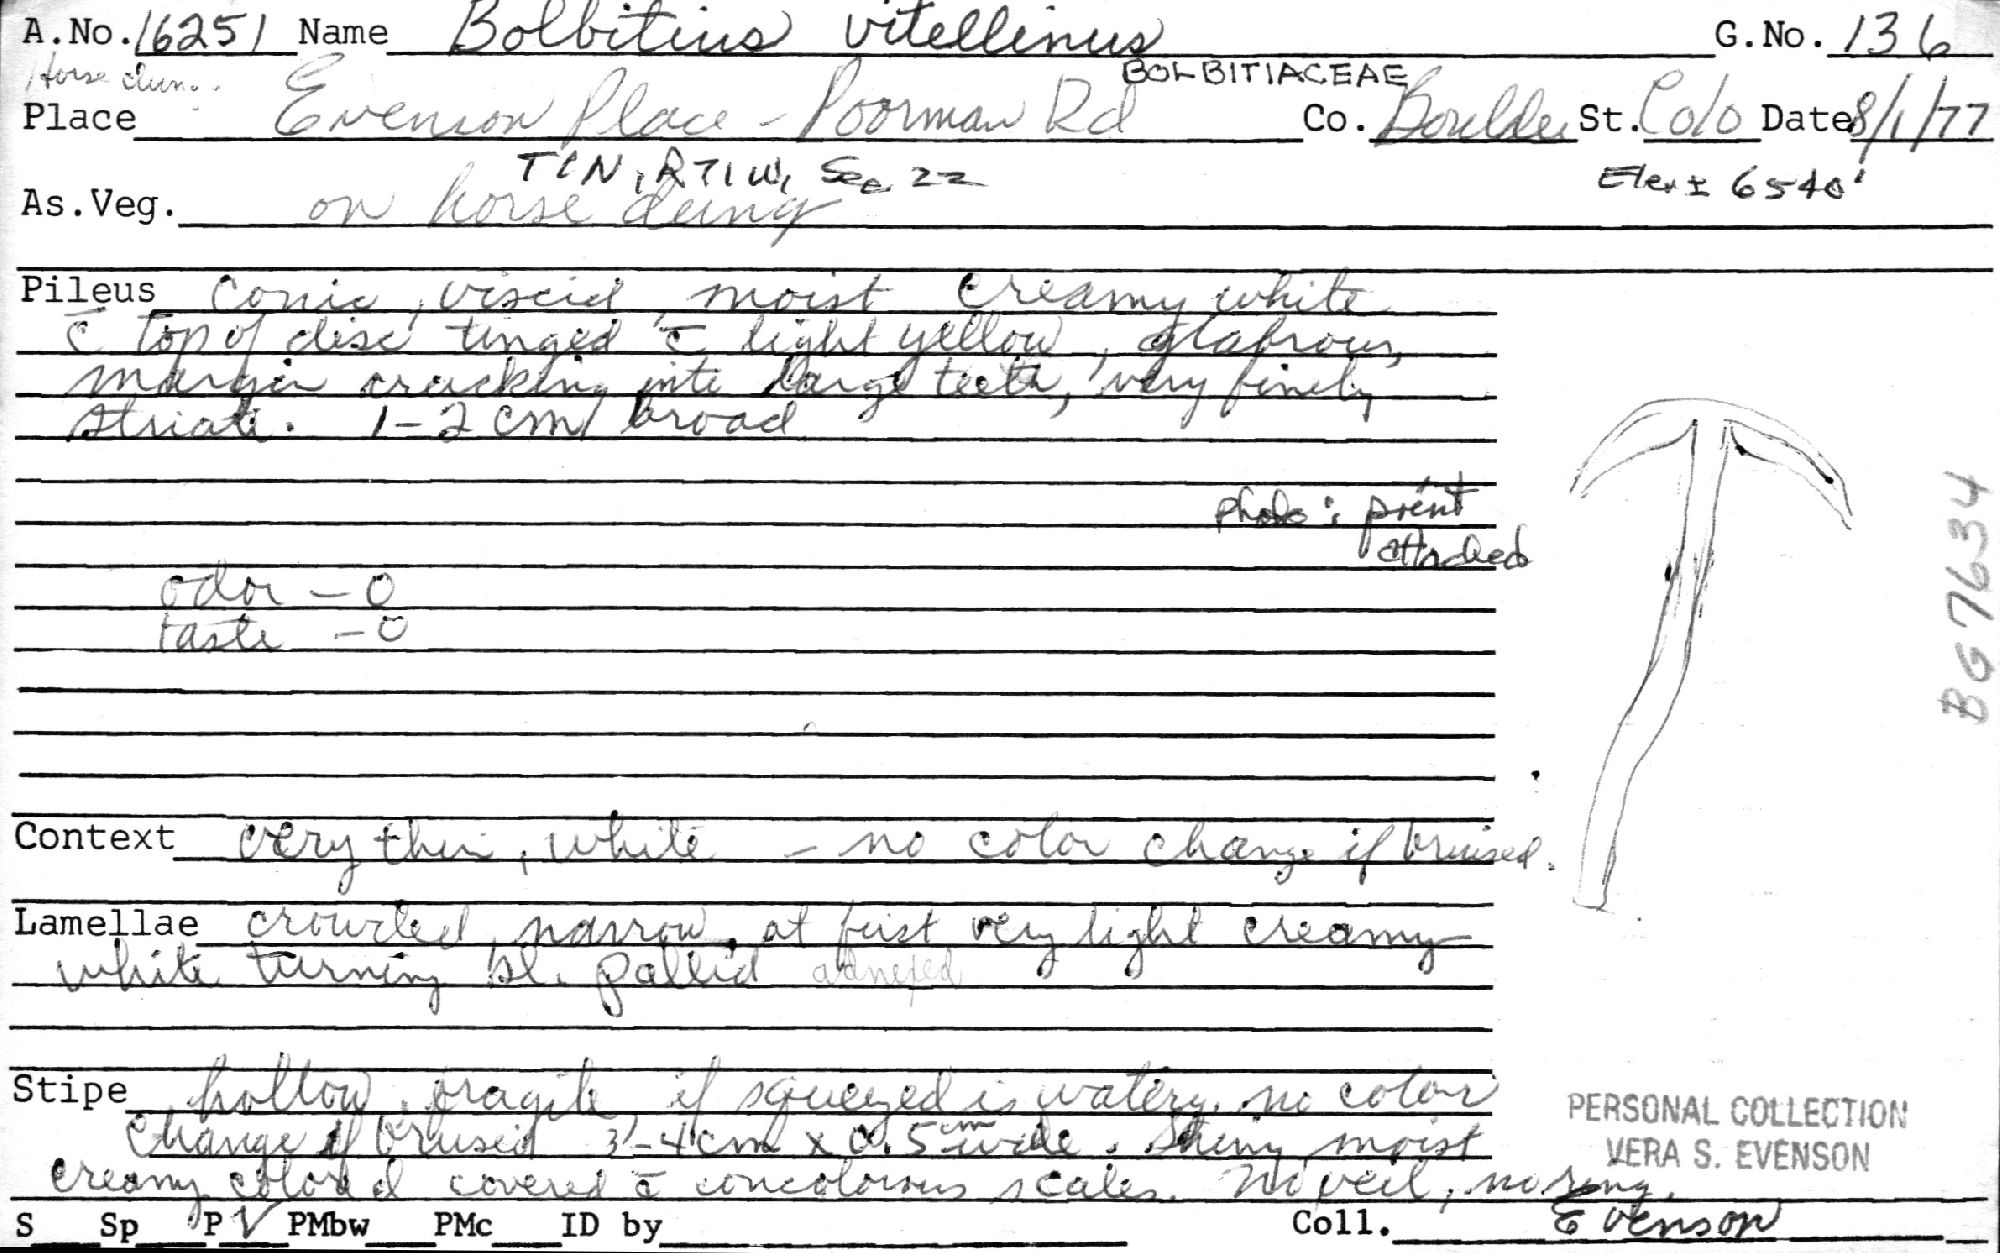 A.No. 16251 Name Bolbitius vitellinus G.No. 136
Horse dung. BOLBITIACEAE
Place Evenson Place - Poorman Rd Co. Boulder St. Colo Date 8/1/77
T1N, R71W, Sec 22 Elev ± 6540'
As.Veg. on horse dung
Pileus Conic, viscid, moist creamy white
c̄ top of disc tinged c̄ light yellow, glabrous,
margin cracking into large teeth, very finely
striate. 1-2 cm broad
photo; print
attached
odor - 0
taste - 0
BG 7634
Context very thin, white - no color change if bruised.
Lamellae crowded, narrow, at first very light creamy
white turning sl. pallid adnexed
Stipe hollow, fragile, if squeezed is watery, no color
change if bruised 3-4 cm x 0.5 cm wide. Shiny, moist
creamy colored covered c̄ concolorous scales. No veil, no ring.
PERSONAL COLLECTION
VERA S. EVENSON
S Sp P V PMbw PMc ID by Coll. Evenson